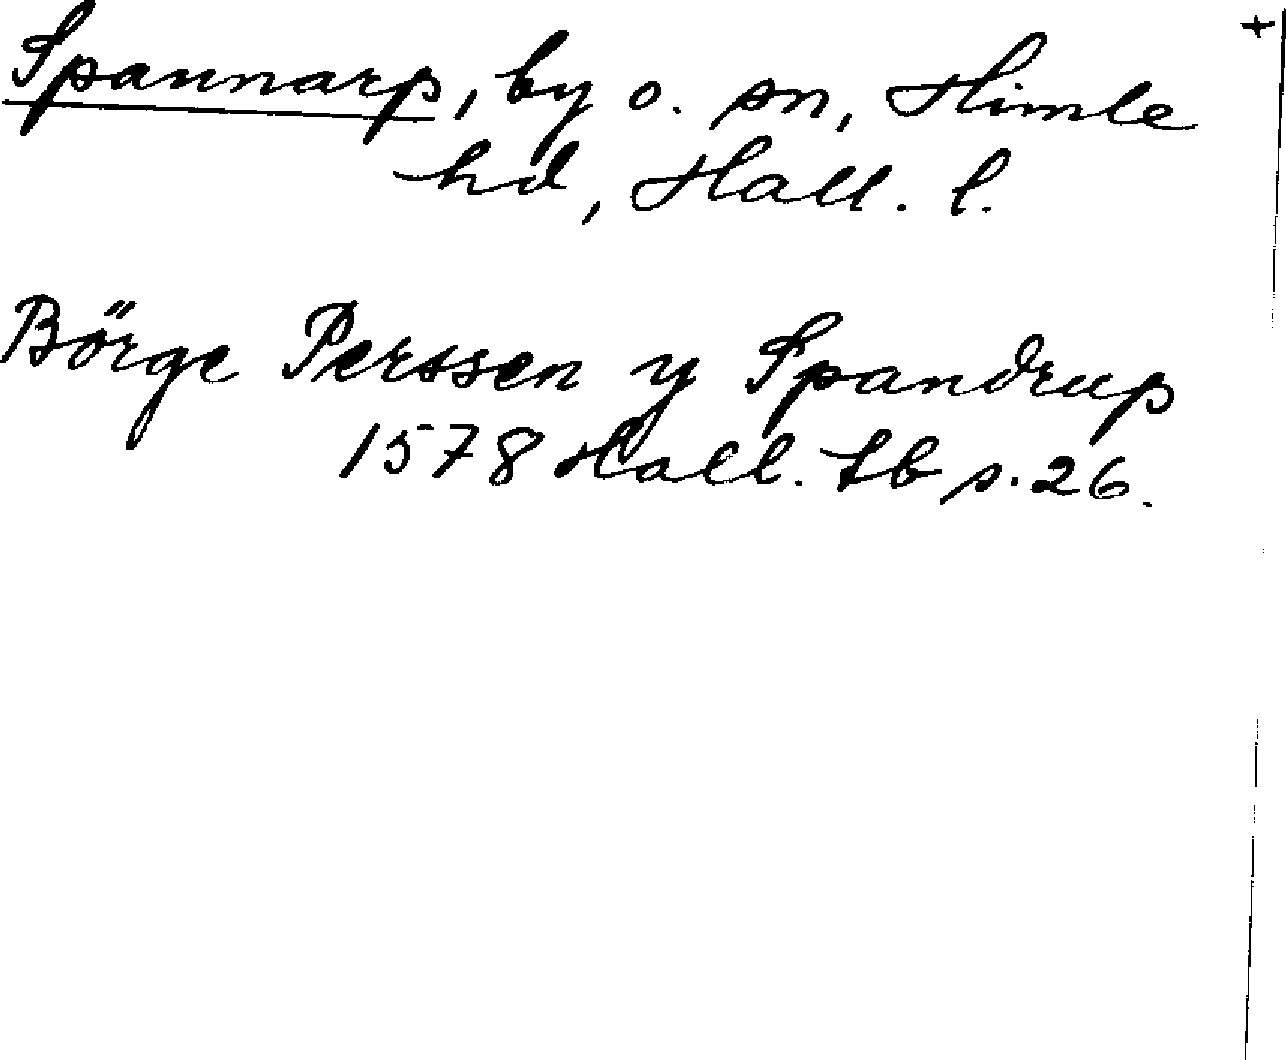 +
Spannarp, by o. sn, Himle
hd, Hall. l.
Börge Perssen y Spandrup
1578 Hall. Lb s. 26.